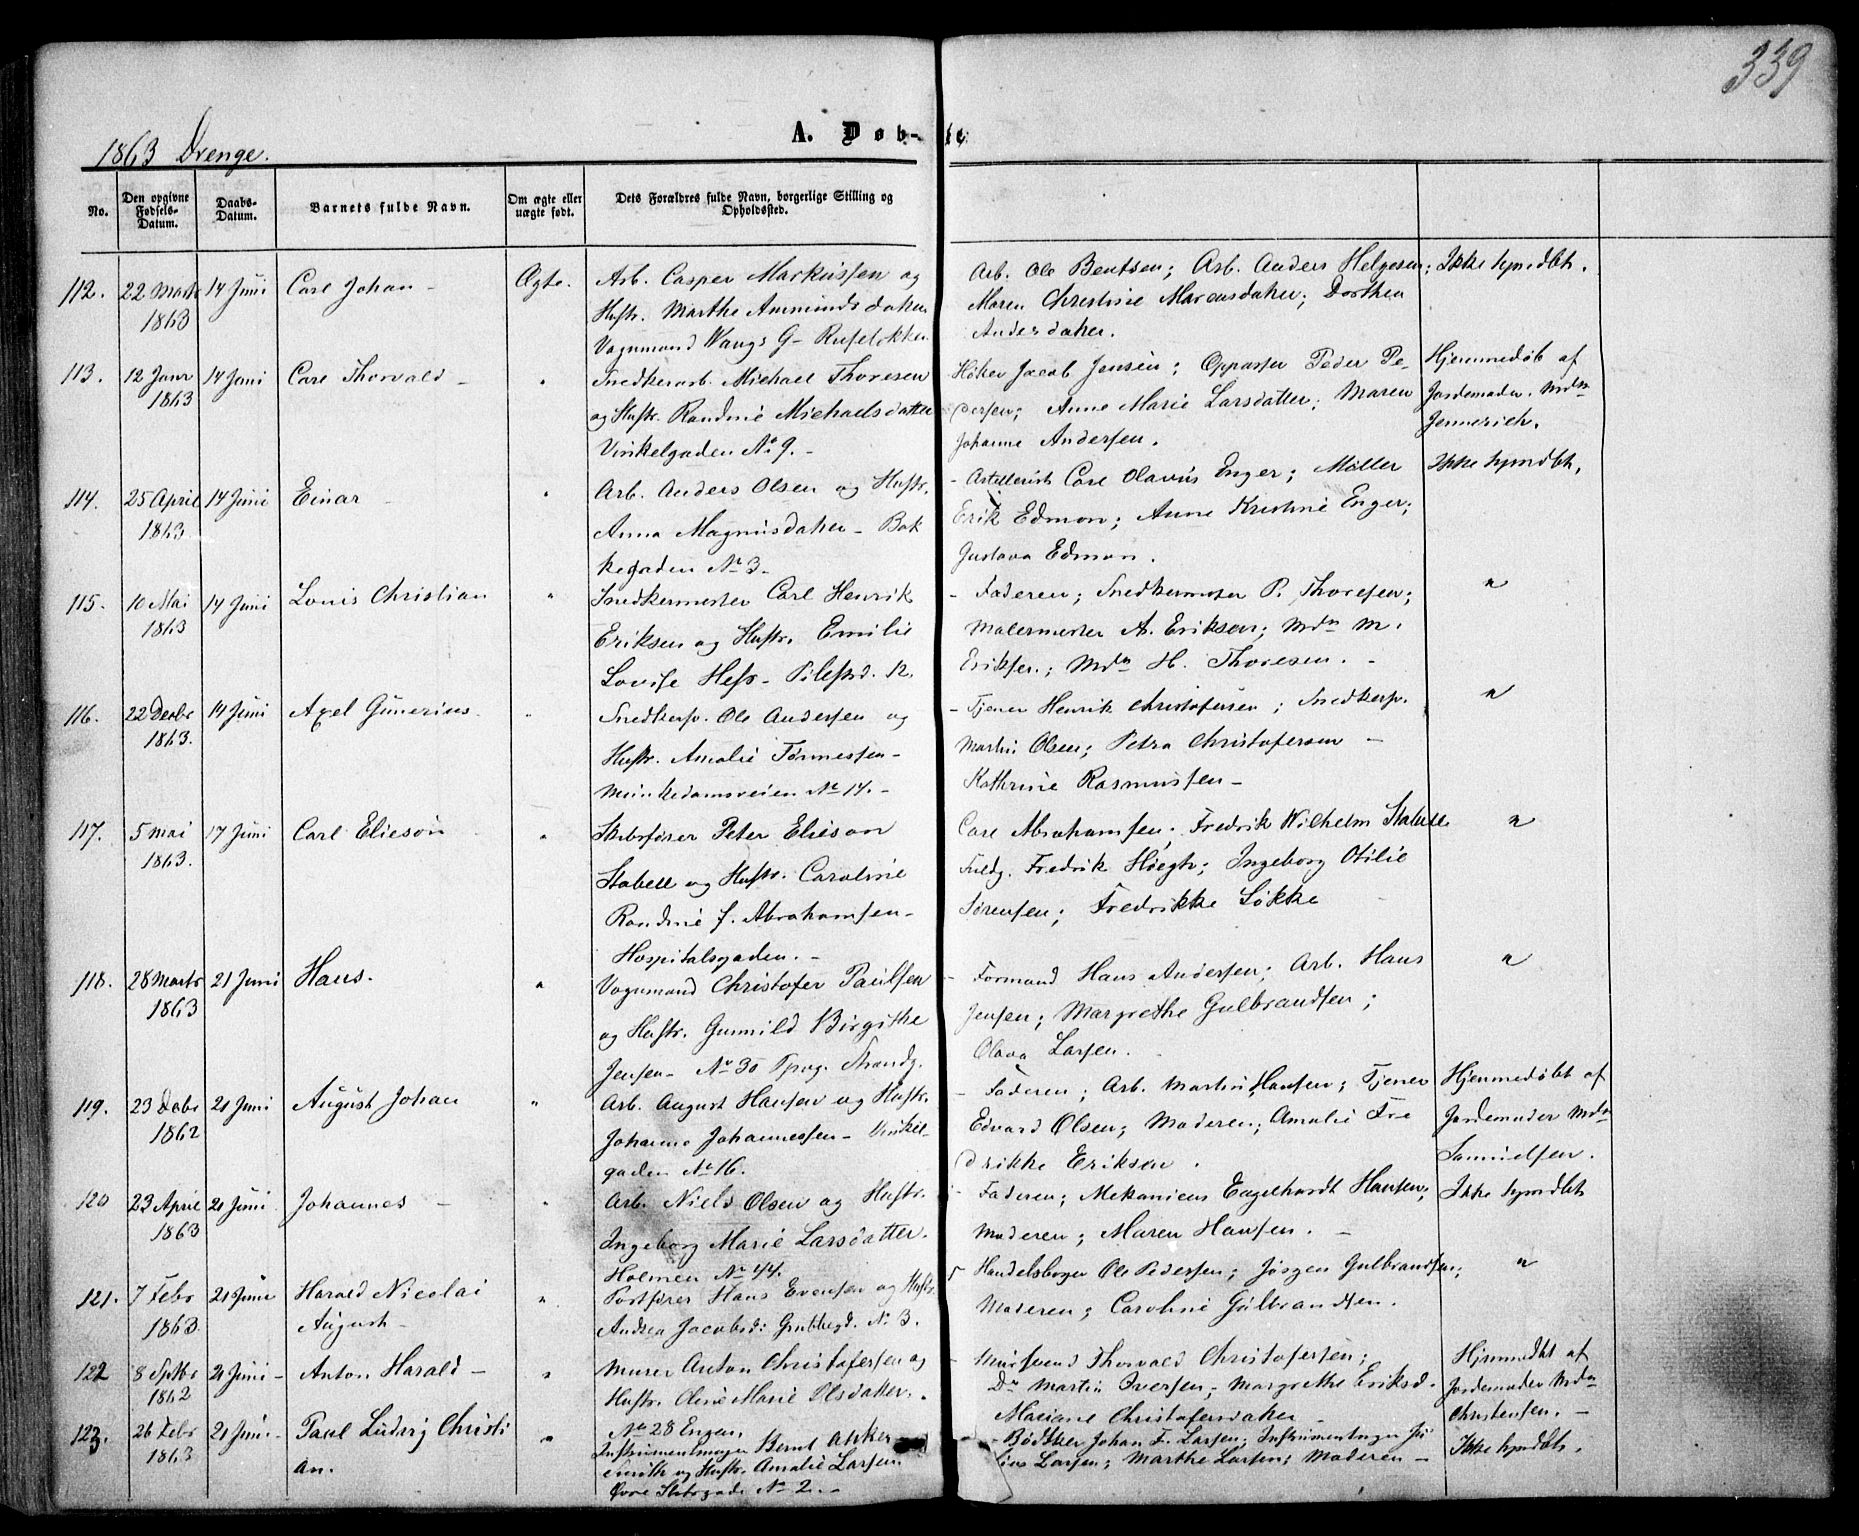 339
1863 Drenge.
A. Døb-te.
No.
Den opgivne Fødsels-Datum.
Daabs-Datum.
Barnets fulde Navn.
Om ægte eller uægte født.
Dets Forældres fulde Navn, borgerlige Stilling og Opholdssted.
112. 22 Marts 14 Juni Carl Johan - Ægte. Arb. Casper Markussen og Arb. Ole Bentsen; Arb. Anders Helgesen; Ikke hjmdbt.
1863 Hustr. Marthe Ammundsdatter Maren Christine Marcusdatter; Dorthea
Vognmand Vaugs G- Rufeløkken Andersdatter.
113. 12 Janr 14 Juni Carl Thorvald - " Snedkerarb. Michael Thoresen Høker Jacob Jensen; Oppasser Peder Pe- Hjemmedøb af
1863 og Hustr. Randine Michaelsdatter dersen; Anne Marie Larsdatter; Maren Jordemoder Mdm
Vinkelgaden No 9. - Johanne Andersen. Jennerich.
114. 25 April 14 Juni Einar - " Arb. Anders Olsen og Hustr. - Artillerist Carl Olavus Enger; Møller Ikke hjmdbt.
1863 Anna Magnusdatter - Bak Erik Edmon; Anne Kristine Enger;
kegaden No 3 - Gustava Edmon.
115. 10 Mai 14 Juni Louis Christian " Snedkermester Carl Henrik - Faderen; Snedkermester P. Thoresen; "
1863 Eriksen og Hustr. Emilie Malermester A. Eriksen; Mdm M.
Lovise Hess - Pilestrd. 12. Eriksen; Mdm H. Thoresen. -
116. 22 Decbr 14 Juni Axel Gunerius. " Snedkersv. Ole Andersen og - Tjener Henrik Christofersen; Snedkersv. "
1863. Hustr. Amalie Tønnessen - Martin Olsen; Petra Christofersen -
Munkedamsveien No 14. - Kathrine Rasmussen -
117. 5 Mai 17 Juni Carl Elieson " Skibsfører Peter Elieson Carl Abrahamsen; Fredrik Wilhelm Stabell "
1863. Stabell og Hustr. Caroline Fuldm. Fredrik Høegh; Ingeborg Otilie
Randine f. Abrahamsen - Sørensen; Fredrikke Løkke
Hospitalsgaden. -
118. 28 Marts 21 Juni Hans. " Vognmand Christofer Paulsen - Formand Hans Andersen; Arb. Hans "
1863 og Hustr. Gunnild Birgitte Jensen; Margrethe Gulbrandsen;
Jensen - No 30 Strandg. Olava Larsen.
119. 23 Decbr 21 Juni August Johan " Arb. August Hansen og Hustr. - Faderen; Arb. Martin Hansen; Tjener Hjemmedøbt af
1862 Johanne Johannessen - Vinkel- Edvard Olsen; Moderen; Amalie Fre Jordemoder Mdm
gaden No 16. drikke Eriksen. Samuelsen.
120 23 April 21 Juni Johannes - " Arb. Niels Olsen og Hustr. - Faderen; Mekanicus Engelhardt Hansen; Ikke hjmdbt
1863 Ingeborg Marie Larsdatter. Moderen; Maren Hansen. -
Holmen No 44.
121. 7 Febr 21 Juni Harald Nicolai " Hans Evensen og Hustr. Handelsborger Ole Pedersen; Jørgen Gulbrandsen; "
1863. August - Andrea Jacobsd: Grubbegd. No 3. Moderen; Caroline Gulbrandsen.
122 8 Septbr 21 Juni - Anton Harald - " Murer Anton Christofersen og - Mursvend Thorvald Christofersen; Hjemmedbt af
1862 Hustr. Oline Marie Olsdatter. - Do Martin Iversen; Margrethe Eriksd. Jordemoder Mdm
No 28 Engen. Mariane Christofersdatter - Christensen. -
123. 26 Febr 21 Juni - Paul Ludvig Christi " Instrumentmager Bernt Asker - Bødker Johan F. Larsen; Instrumentmager Ju Ikke hjmdbt.
1863 an. og Hustr. Amalie Larsen lius Larsen; Marthe Larsen; Moderen -
Øvre Slotsgade No 2. -